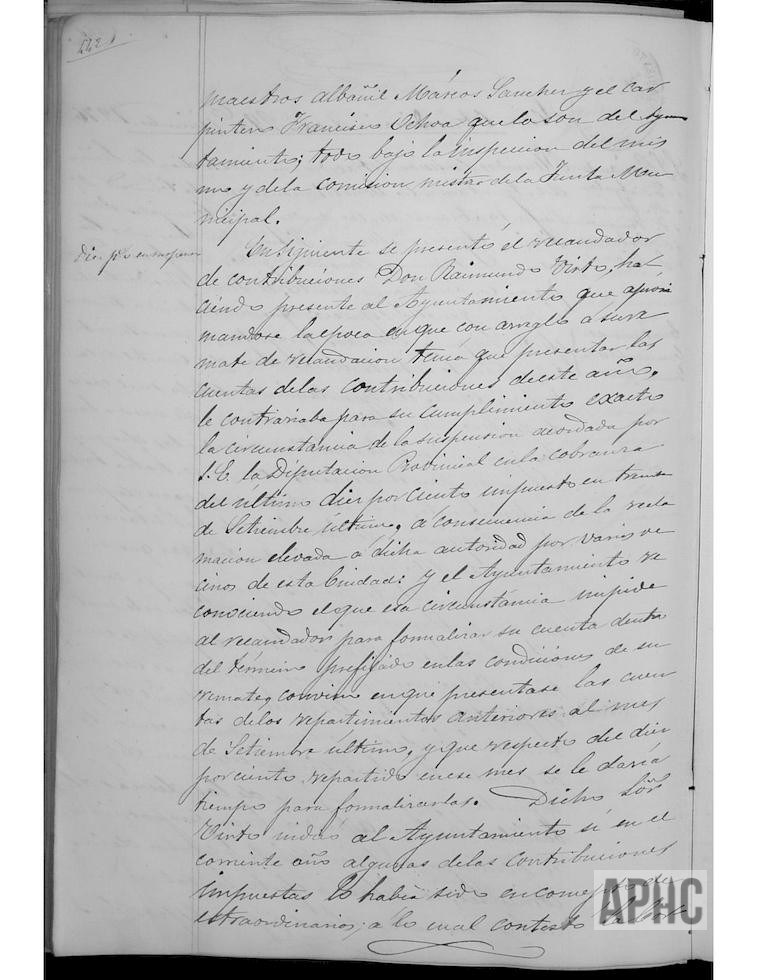 442
maestros albañil Márcos Sanchez y el car
pintero Francisco Ochoa que lo son del Ayun
tamiento; todo bajo la inspeccion del mis
mo y de la comision mistra de la Junta Mu
nicipal.
Enseguiente se presentó el recaudador
de contribuciones Don Raimundo Virto, ha
ciendo presente al Ayuntamiento que aprócsi
mandose la epoca en que con arreglo a su re
mate de recaudacion tenia que presentar las
cuentas de las contribuciones de este año,
le contrariaba para su cumplimiento exacto
la circunstancia de la suspension acordada por
S. E. la Diputacion Provincial en la cobranza
del ultimo diez por ciento impuesto en treinta
de Setiembre último, á consecuencia de la recla
macion elevada á dicha autoridad por varios ve
cinos de esta Ciudad: y el Ayuntamiento re
conociendo el que esa circunstáncia impide
al recaudador para formalizar su cuenta dentro
del término prefijado en las condiciones de su
remate, convino en que presentase las cuen
tas de los repartimientos anteriores al mes
de Setiembre último, y que respecto del diez
por ciento repartido en ese mes se le daria
tiempo para formalizarlas. Dicho Señor
Virto indicó al Ayuntamiento si en el
corriente año algunas de las contribuciones
impuestas lo habia sido en concepto de
estraordinarios; a lo cual contestó la Cor
APHC